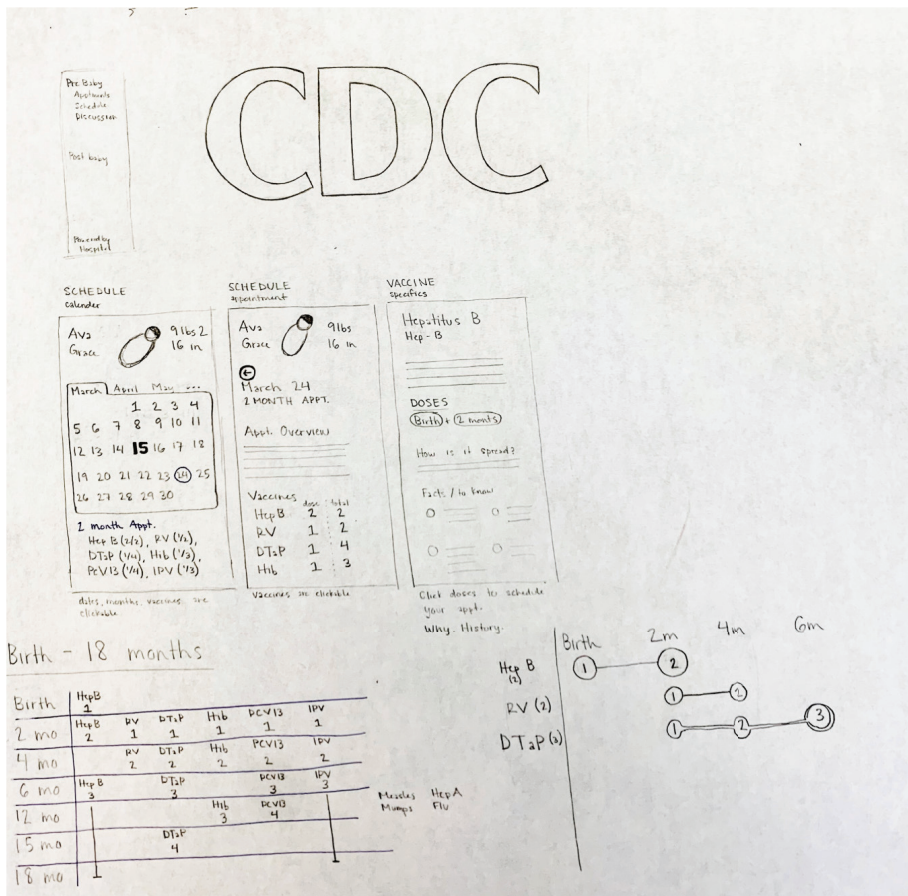 Pre Baby
Apptments
Schedule
Discussion
Post baby
Powered by
Hospital
CDC
SCHEDULE
calender
Ava
Grace
9 lbs 2
16 in
March April May ...
1 2 3 4
5 6 7 8 9 10 11
12 13 14 15 16 17 18
19 20 21 22 23 24 25
26 27 28 29 30
2 month Appt.
Hep B (2/2), RV (1/2),
DTaP (1/4), Hib (1/3)
PCV13 (1/4), IPV (1/3)
dates, months, vaccines are
clickable
SCHEDULE
appointment
Ava
Grace
9 lbs
16 in
March 24
2 MONTH APPT.
Appt. Overview
Vaccines dose total
Hep B 2 2
RV 1 2
DTaP 1 4
Hib 1 3
Vaccines are clickable
VACCINE
specifics
Hepatitus B
Hep - B
DOSES
Birth + 2 monts
How is it spread?
Facts / to know
Click doses to schedule
your appt.
Why. History.
Birth - 18 months
Birth HepB
1
2 mo HepB RV DTaP Hib PCV13 IPV
2 1 1 1 1 1
4 mo RV DTaP Hib PCV13 IPV
2 2 2 2 2
6 mo Hep B DTaP PCV13 IPV
3 3 3 3
12 mo Hib PCV13
3 4
15 mo DTaP
4
18 mo
Measles HepA
Mumps Flu
Birth 2m 4m 6m
Hep B
(2)
1 2
RV (2) 1 2
DTaP (3) 1 2 3